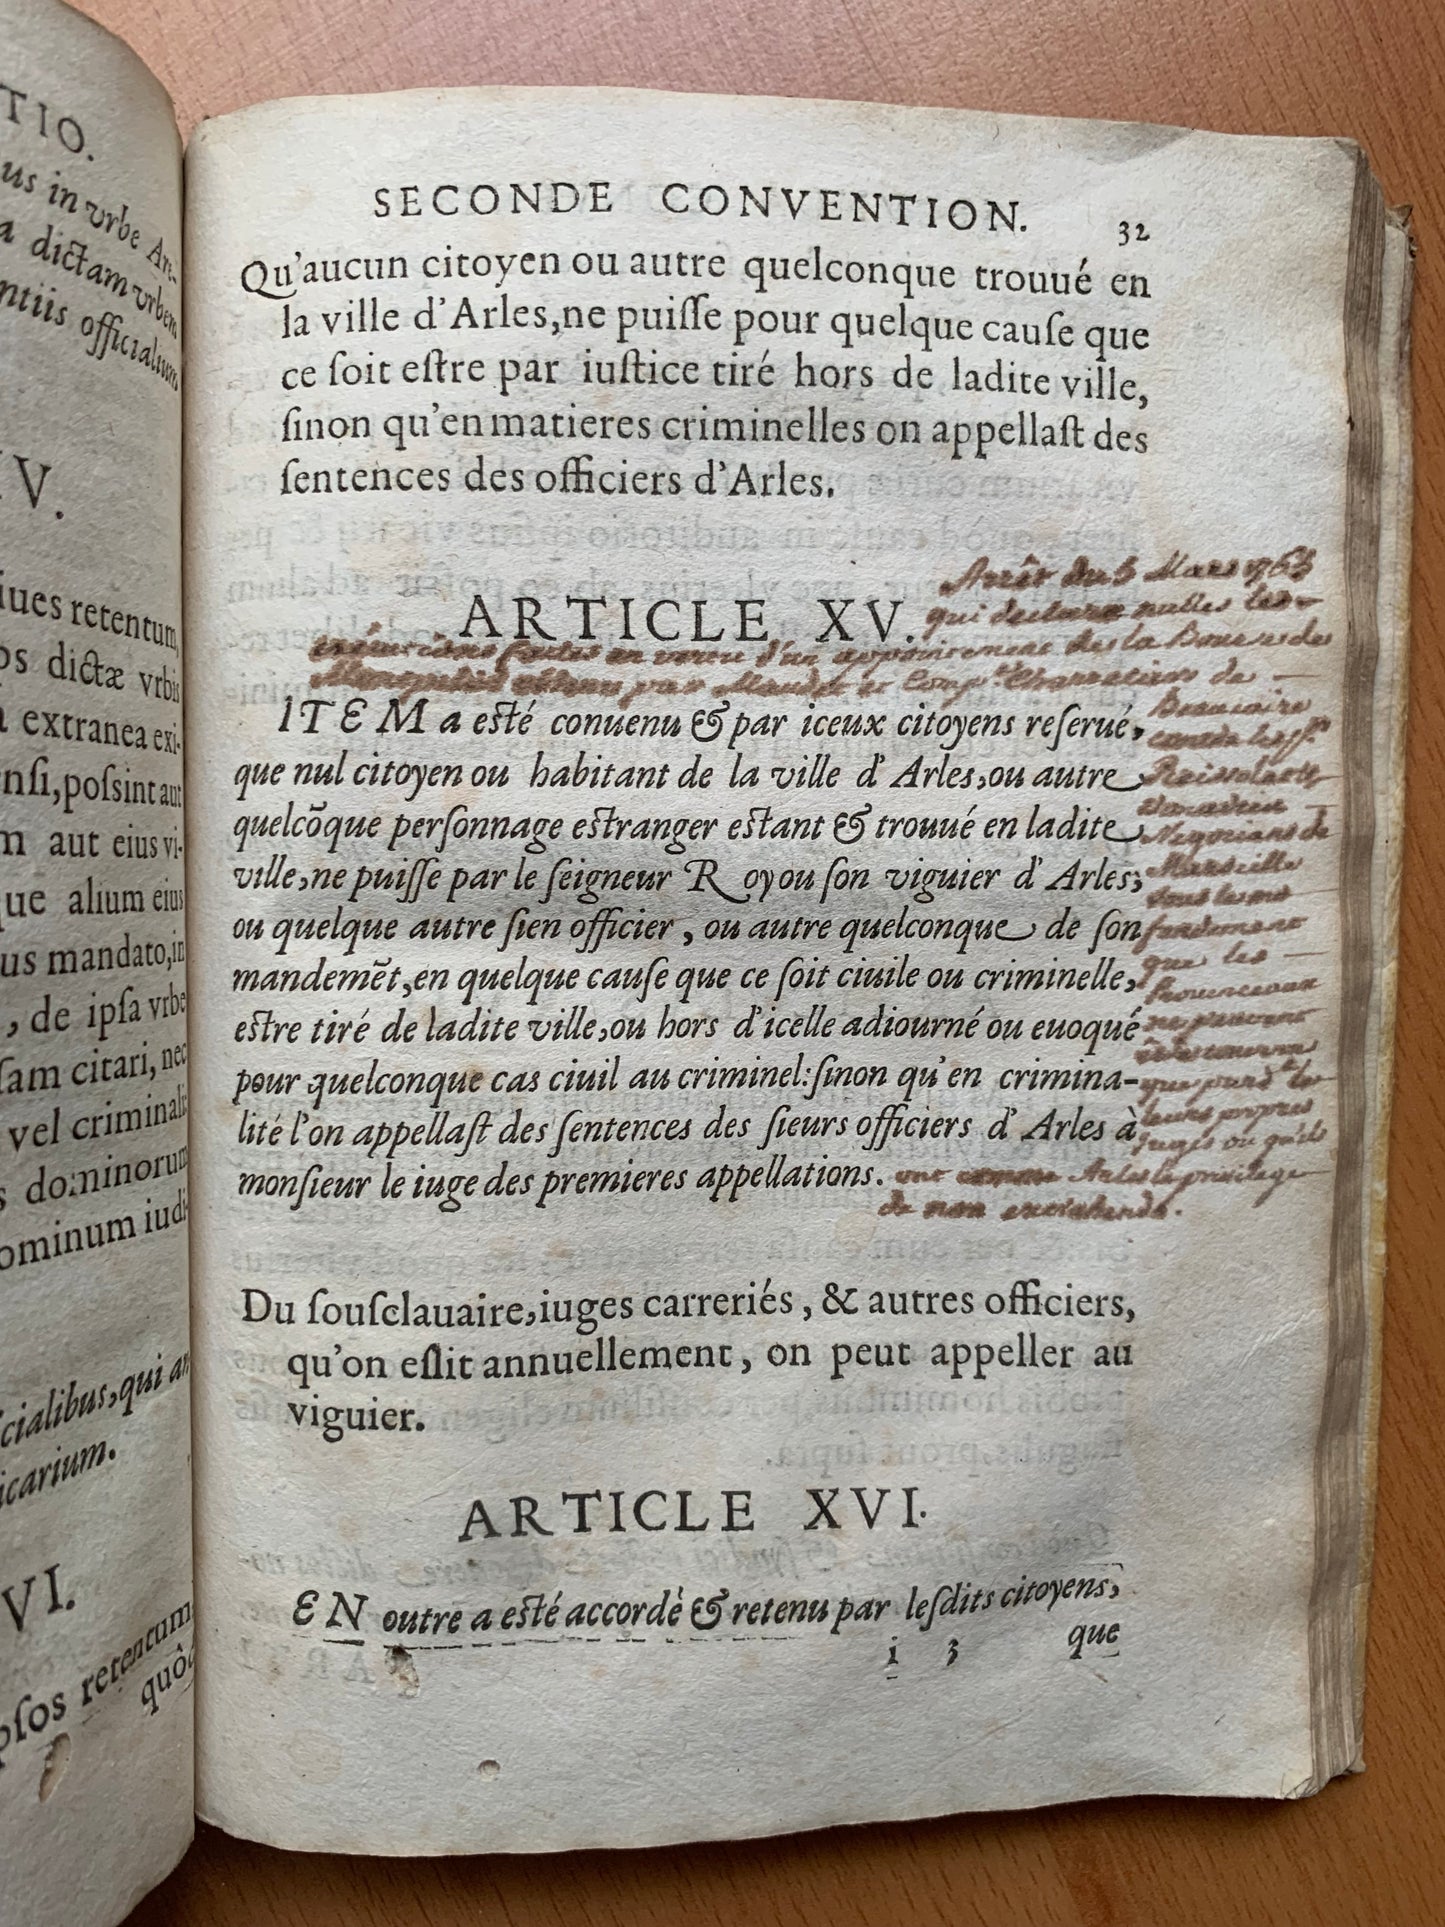 TIO.
us in vrbe Are-
a dictam vrbem
ntiis officialium
IV.
iues retentum,
os dictæ vrbis
extranea exi-
nsi, possint aut
m aut eius vi-
que alium eius
us mandato, in
, de ipsa vrbe
sam citari, nec
vel criminali
s dominorum
ominum iudi-
cialibus, qui an
icarium.
VI.
psos retentum
quòd
SECONDE CONVENTION. 32
Qu'aucun citoyen ou autre quelconque trouué en
la ville d'Arles, ne puiſſe pour quelque cauſe que
ce ſoit eſtre par iuſtice tiré hors de ladite ville,
ſinon qu'en matieres criminelles on appellaſt des
ſentences des officiers d'Arles.
ARTICLE XV.
Arrêt du 5 Mars 1763
qui declare nulles les
exécutions faites en vertu d'un appointement de la Bourse de
Montpellier obtenu par Maudet et Comp.e Charretiers de
Beaucaire
contre les srs
Negocians de
Marseille
sous le
fondement
que les
Provenceaux
ne peuvent
être
que pard.t
leurs propres
juges ou qu'ils
ont comme Arles le privilege
de non extrahendo.
ITEM a eſté conuenu & par iceux citoyens reſerué,
que nul citoyen ou habitant de la ville d'Arles, ou autre
quelcõque perſonnage eſtranger eſtant & trouué en ladite
ville, ne puiſſe par le ſeigneur Roy ou ſon viguier d'Arles,
ou quelque autre ſien officier, ou autre quelconque de ſon
mandemẽt, en quelque cauſe que ce ſoit ciuile ou criminelle,
eſtre tiré de ladite ville, ou hors d'icelle adiourné ou euoqué
pour quelconque cas ciuil au criminel: ſinon qu'en crimina-
lité l'on appellaſt des ſentences des ſieurs officiers d'Arles à
monſieur le iuge des premieres appellations.
Du ſouſclauaire, iuges carreriés, & autres officiers,
qu'on eſlit annuellement, on peut appeller au
viguier.
ARTICLE XVI.
EN outre a eſté accordè & retenu par leſdits citoyens,
i 3 que